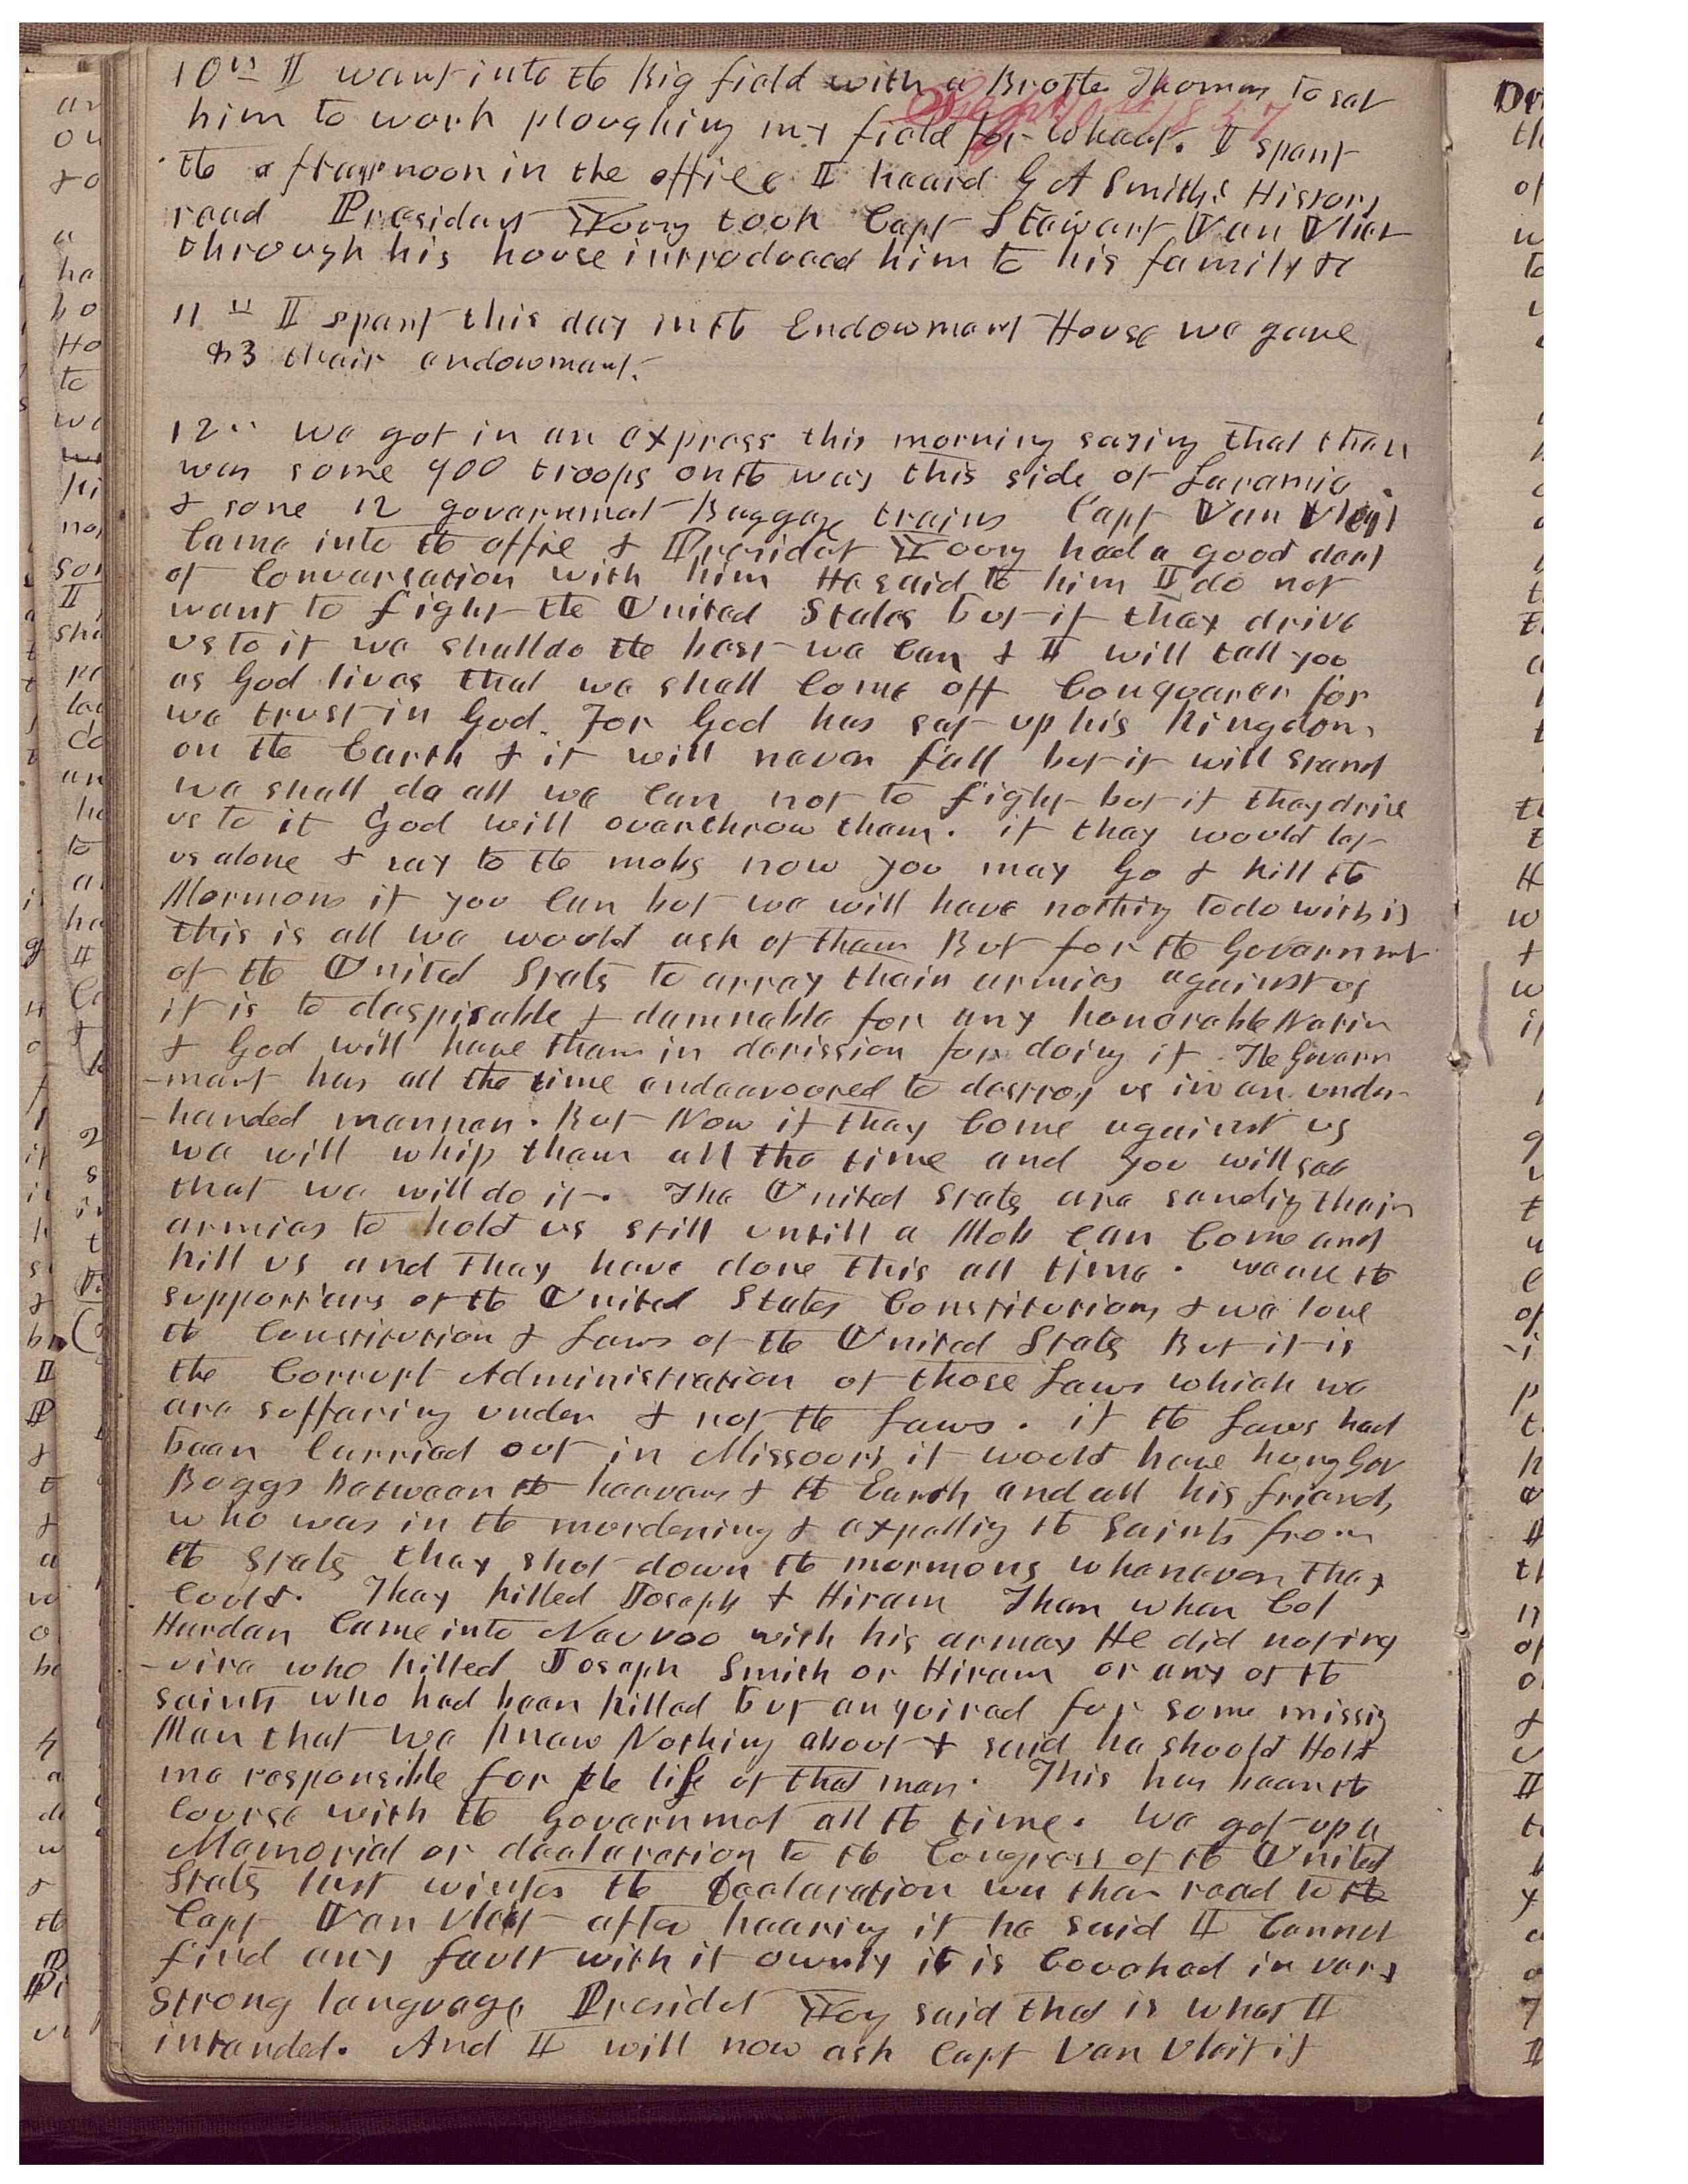 10th I went into the Big field with a Brother Thomas to set
him to work ploughing my field for wheat. I spent
the afternoon in the office I heard G A Smiths History
read President Young took Capt Stewart Van Vliet
through his house introduced him to his family &c
Sept 10th 1857
11th I spent this day in the Endowment House we gave
their endowment.
12th we got in an express this morning saying that their
was some 400 troops on the way this side of Laramie.
& some 12 governmet Baggage trains Capt Van Vleit
Came into the offie & Presidet Young had a good deal
of Conversation with him He said to him I do not
want to fight the United States but if they drive
us to it we shall do the best we Can & I will tell you
as God lives that we shall Come off Conquerer for
we trust in God. For God has set up his Kingdom
on the Earth & it will never fall but it will stand
we shall do all we Can not to fight but if they drive
us to it God will overthrow them. if they would let
us alone & say to the mobs now you may Go & kill the
Mormons if you Can but we will have nothing to do with it
this is all we would ask of them But for the Governmet
of the United States to array their armies against us
it is to despisable & damnable for any honorable Nation
& God will have them in derission for doing it. The Govern
-ment has all the time endeavoured to destroy us in an under-
-handed manner. But Now if they Come against us
we will whip them all the time and you will see
that we will do it. The United States are sendig their
armies to hold us still untill a Mob Can Come and
kill us and They have done this all time. we are the
supporters of the United States Constitution & we love
the Constitution & Laws of the United States But it is
the Corrupt Administration of those Laws which we
are suffering under & not the Laws. if the Laws had
been Carried out in Missouri it would have hung Gov
Boggs Between the heavens & the Earth and all his friends
who was in the murdering & expellig the Saints from
the States they shot down the mormons whenever they
Could. They killed Joseph & Hiram Then when Col
Hardan Came into Nauvoo with his armey He did not inq
-uire who killed Joseph Smith or Hiram or any of the
saints who had been killed but enquired for some missig
Man that we knew Nothing about & said he should Hold
me responsible for the life of that man. This has been the
Course with the Governmet all the time. we got up a
Memorial or declaration to the Congress of the United
States last winter the Declaration was then read to the
Capt Van Vleit after hearing it he said I Cannot
find any fault with it ownly it is Couched in very
strong language Presidet Young said that is what I
intended. And I will now ask Capt Van Vleit if